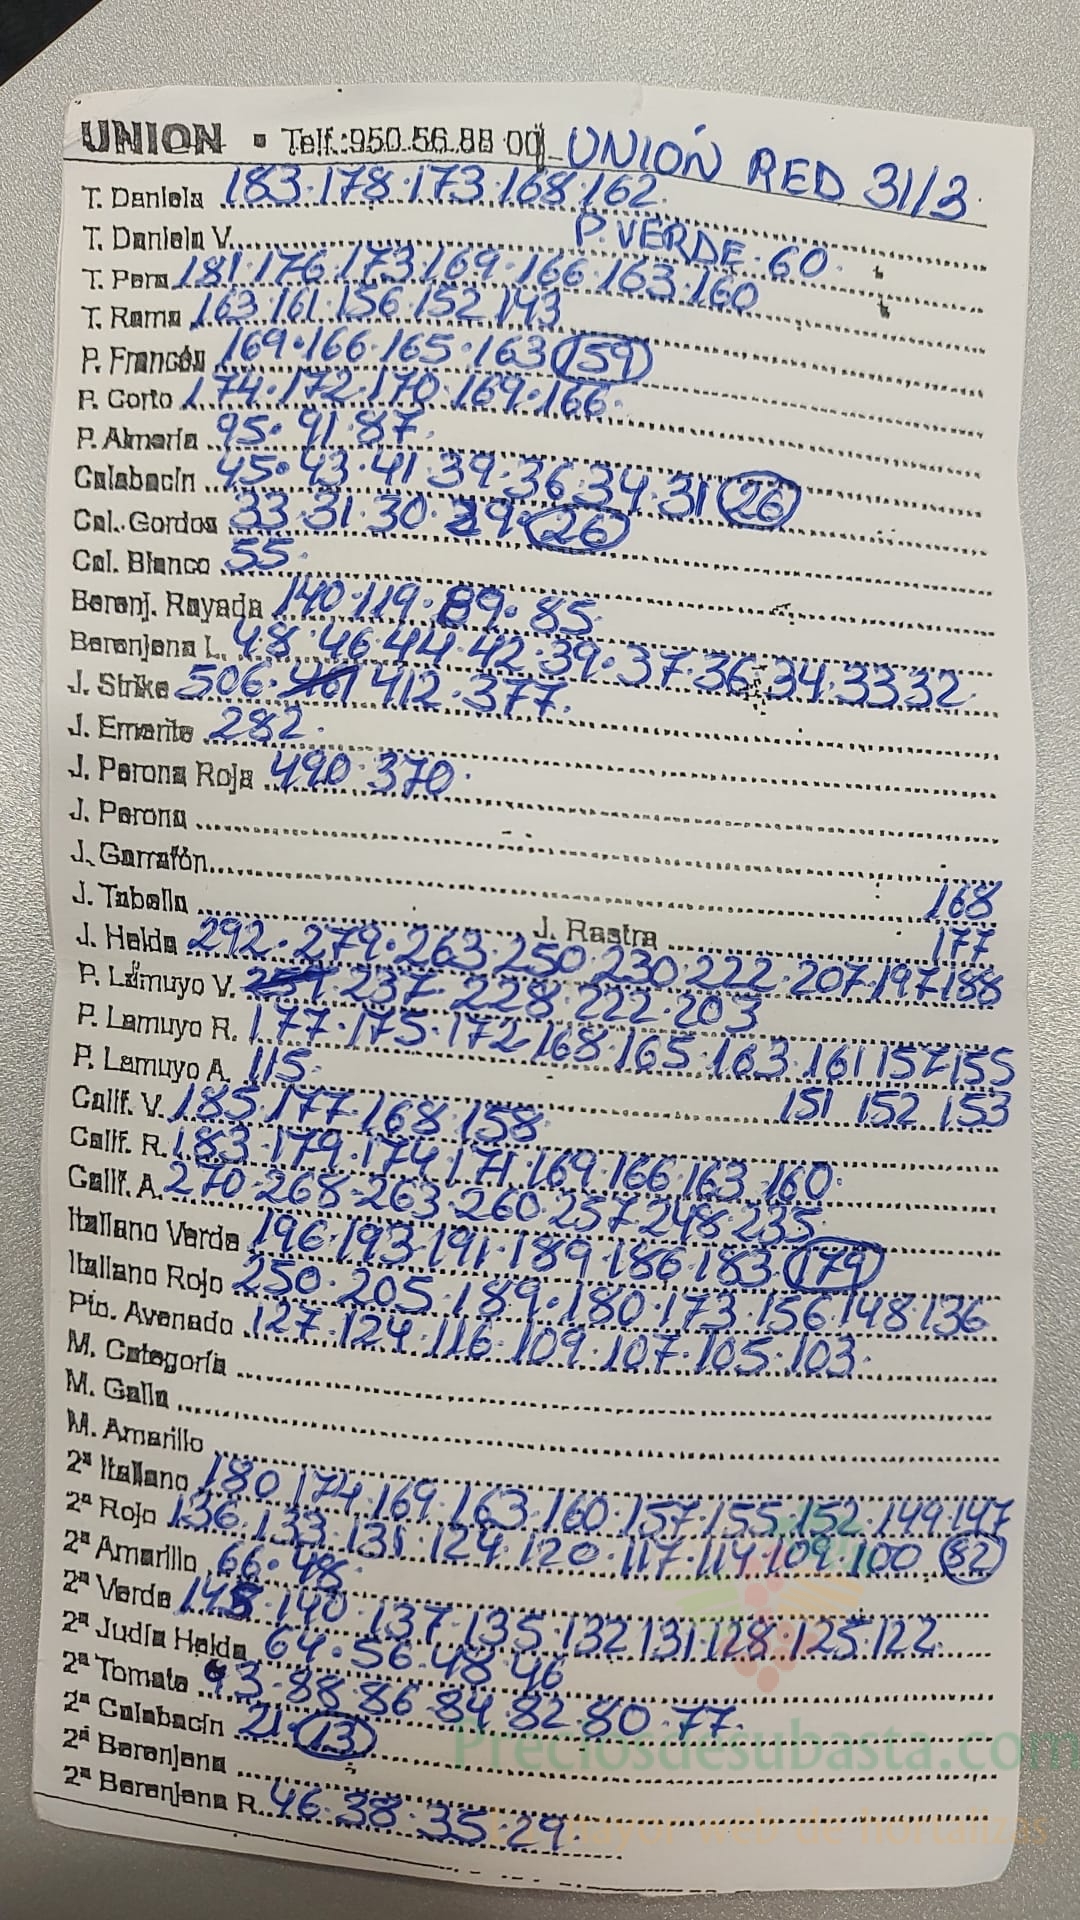 UNION ▪ Telf.:950.56.88 00 UNIÓN RED 31/3
T. Daniela 183.178.173.168.162
T. Daniela V. P. VERDE.60.
T. Pera 181.176.173.169.166.163.160
T. Rama 163.161.156.152.143
P. Francés 169.166.165.163 159
P. Corto 174.172.170.169.166.
P. Almería 95.91.87.
Calabacín 45.43.41.39.36.34.31 26
Cal. Gordos 33.31.30.29.26
Cal. Blanco 55.
Berenj. Rayada 140.119.89.85
Berenjena L. 48.46.44.42.39.37.36.34.33 32.
J. Strike 506. 412.377.
J. Emerite 282.
J. Perona Roja 490.370.
J. Perona
J. Garrafón 168
J. Tabella J. Rastra 177
J. Helda 292.279.263.250.230.222.207.197 188
P. Lamuyo V. 237.228.222.203
P. Lamuyo R. 177.175.172 168.165.163.161 157 155
P. Lamuyo A. 115. 151 152 153
Calif. V. 185.177.168.158
Calif. R. 183.179.174.171.169.166.163.160.
Calif. A. 270.268.263.260.257.248.235
Italiano Verde 196.193.191.189.186.183 179
Italiano Rojo 250.205.189.180.173.156.148.136
Pic. Avenado 127.124.116.109.107.105.103.
M. Categoría
M. Galia
M. Amarillo
2ª Italiano 180 174.169.163.160.157.155.152.149.147
2ª Rojo 136.133.131.124.120.117.114.109.100 82
2ª Amarillo 66.48.
2ª Verde 140.137.135.132 131.128.125.122.
2ª Judía Helda 64.56.48.46
2ª Tomate 93.88.86.84.82.80.77.
2ª Calabacín 21.13
2ª Berenjena
2ª Berenjena R. 46.38.35.29
Preciosdesubasta.com
mayor web de hortalizas